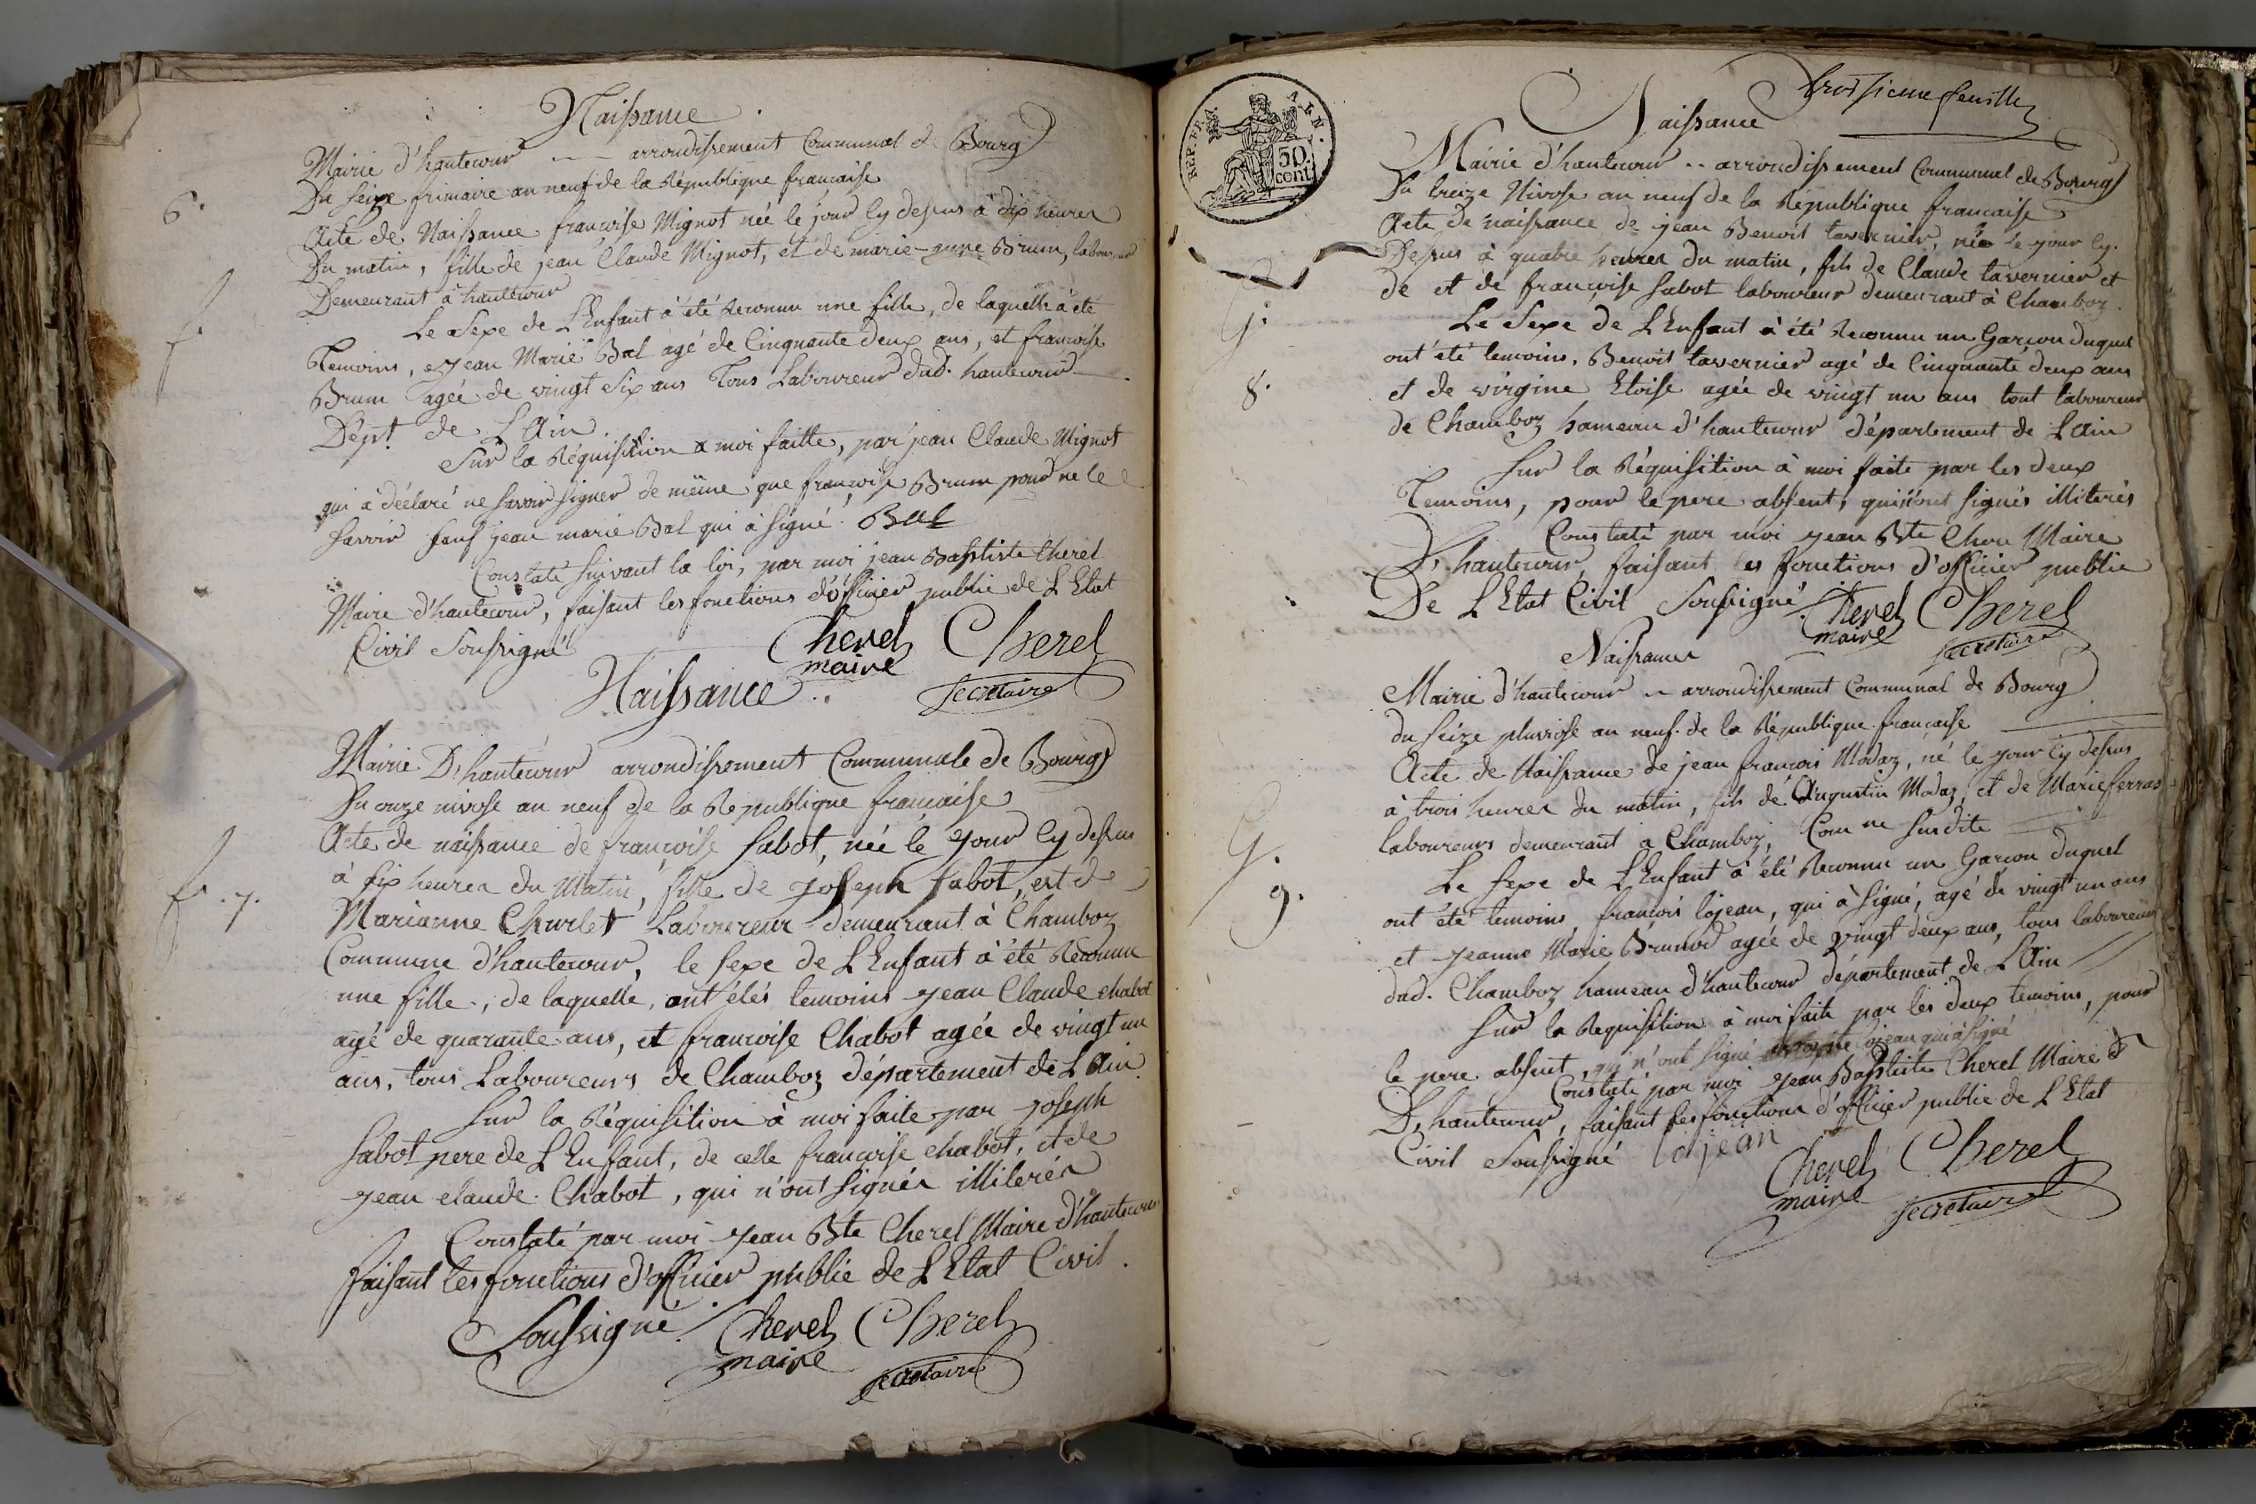 Naissance
Mairie d'hautecour arrondissement Communal de Bourg
6.
Du Seize frimaire an neuf de la République francaise
Acte de Naissance francoise Mignot née le jour Cy dessus à dix heures
Du matin, fille de jean Claude Mignot, et de marie-anne Brun, laboureur
Demeurant à hautecour
f.
Le Sexe de L'Enfant à été Reconnu une fille, de laquelle à été
Temoins, Jean Marie Bal agé de Cinquante deux ans, et francoise
Brun agée de vingt Six ans Tous Laboureur dud. hautecour
Dépt. de L'Ain.
Sur la Réquisition a moi faitte, par jean Claude Mignot
qui a déclaré ne Savoir Signer de même que francoise Brun pour ne le
Savoir Sauf jean marie Bal qui à Signé. Bal
Constaté Suivant la loi, par moi jean Baptiste Cherel
Maire d'hautecour, faisant les fonctions d'officier public de L'Etat
Civil Soussigné
Cherel Cherel
maire secretaire
Naissance
Mairie D'hautecour arrondissement Communale de Bourg
Du onze nivose an neuf de la République francaise
Acte de naissance de francoise Sabot, née le jour Cy dessus
à six heures du Matin, fille de Joseph Sabot, et de
f. 7.
Marianne Churlet, Laboureur demeurant à Chamboz
Commune d'hautecour, le Sexe de L'Enfant à été Reconnu
une fille, de laquelle, ont étés temoins Jean Claude chabot
agé de quarante ans, et francoise Chabot agée de vingt un
ans, tous Laboureurs de Chamboz département de L'Ain.
Sur la Réquisition à moi faite par Joseph
Sabot pere de L'Enfant, de celle francoise chabot, et de
Jean claude Chabot, qui n'ont Signés illiterés
Constaté par moi Jean Bte Cherel Maire d'hautecour
faisant les fonctions d'officier public de L'Etat Civil.
Soussigné. Cherel Cherel
maire secretaire
REP. FRA. 50 cent
troisieme feuille
Naissance
Mairie d'hautecour arrondissement Communal de Bourg
Du treize Nivose an neuf de la République francaise
Acte de naissance de jean Benoit tavernier, né le jour Cy
Dessus à quatre heures du matin, fils de Claude tavernier et
de et de francoise Sabot laboureur demeurant à Chamboz.
g.
Le Sexe de L'Enfant à été Reconnu un Garcon duquel
ont été temoins, Benoit tavernier agé de Cinquante deux ans
8.
et de virgine Eloise agée de vingt un ans tout laboureur
de Chamboz hameau d'hautecour département de L'Ain
Sur la Réquisition à moi faite par les deux
Temoins, pour le pere absent, qui n'ont Signés illiterés
Constaté par moi Jean Bte Maire
D'hautecour, faisant les fonctions d'officier public
De L'Etat Civil Soussigné. Cherel Cherel
maire secretaire
Naissance
Mairie d'hautecour arrondissement Communal de Bourg
du Seize pluviose an neuf de la République francaise
Acte de Naissance de jean francois Modaz, né le jour Cy dessus
à trois heures du matin, fils de Augustin Modaz, et de Marie ferras
G.
laboureurs demeurant a Chamboz, Comne Susdite
Le Sexe de L'Enfant à été Reconnu un Garcon duquel
9.
ont été temoins francois lojean, qui à Signé, agé de vingt un ans
et Jeanne Marie Brunod agée de vingt deux ans, tous laboureurs
dud. Chamboz hameau d'hautecour département de L'Ain
Sur la Requisition à moi faite par les deux temoins, pour
le pere absent, qui n'ont Signé lojean qui à signé
Constaté par moi Jean Baptiste Cherel Maire
D'hautecour, faisant les fonctions d'officier public de L'Etat
Civil Soussigné lojean
Cherel Cherel
maire secretaire